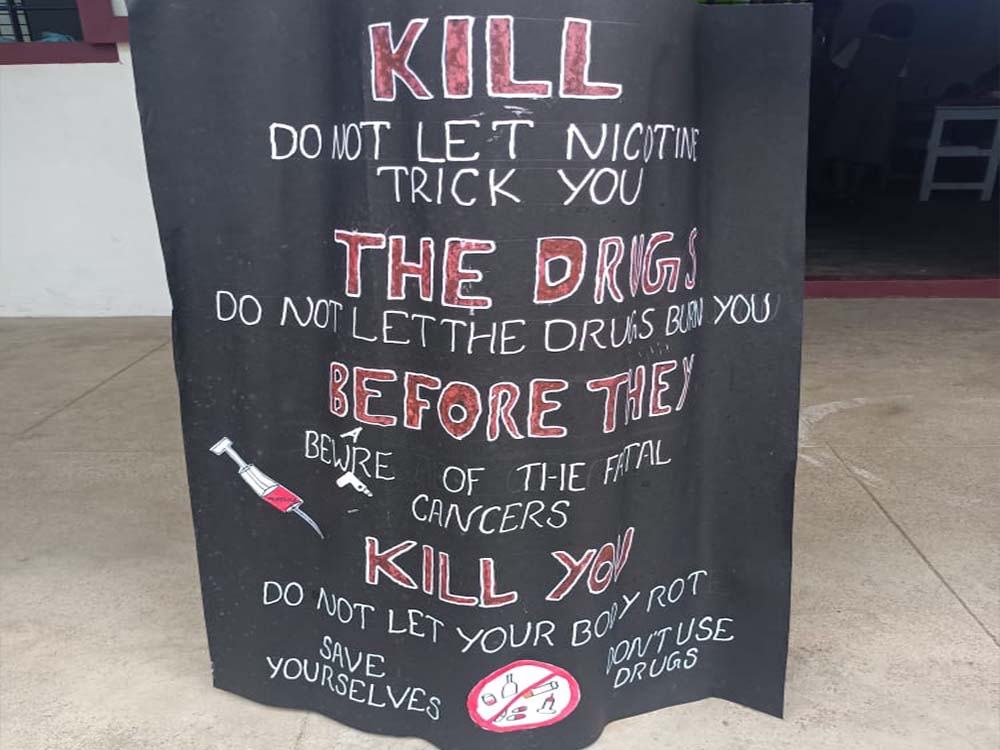 KILL
DO NOT LET NICOTINE
TRICK YOU
THE DRUGS
DO NOT LET THE DRUGS BURN YOU
BEFORE THEY
BEWARE OF THE FATAL
CANCERS
KILL YOU
DO NOT LET YOUR BODY ROT
SAVE
YOURSELVES
DON'T USE
DRUGS